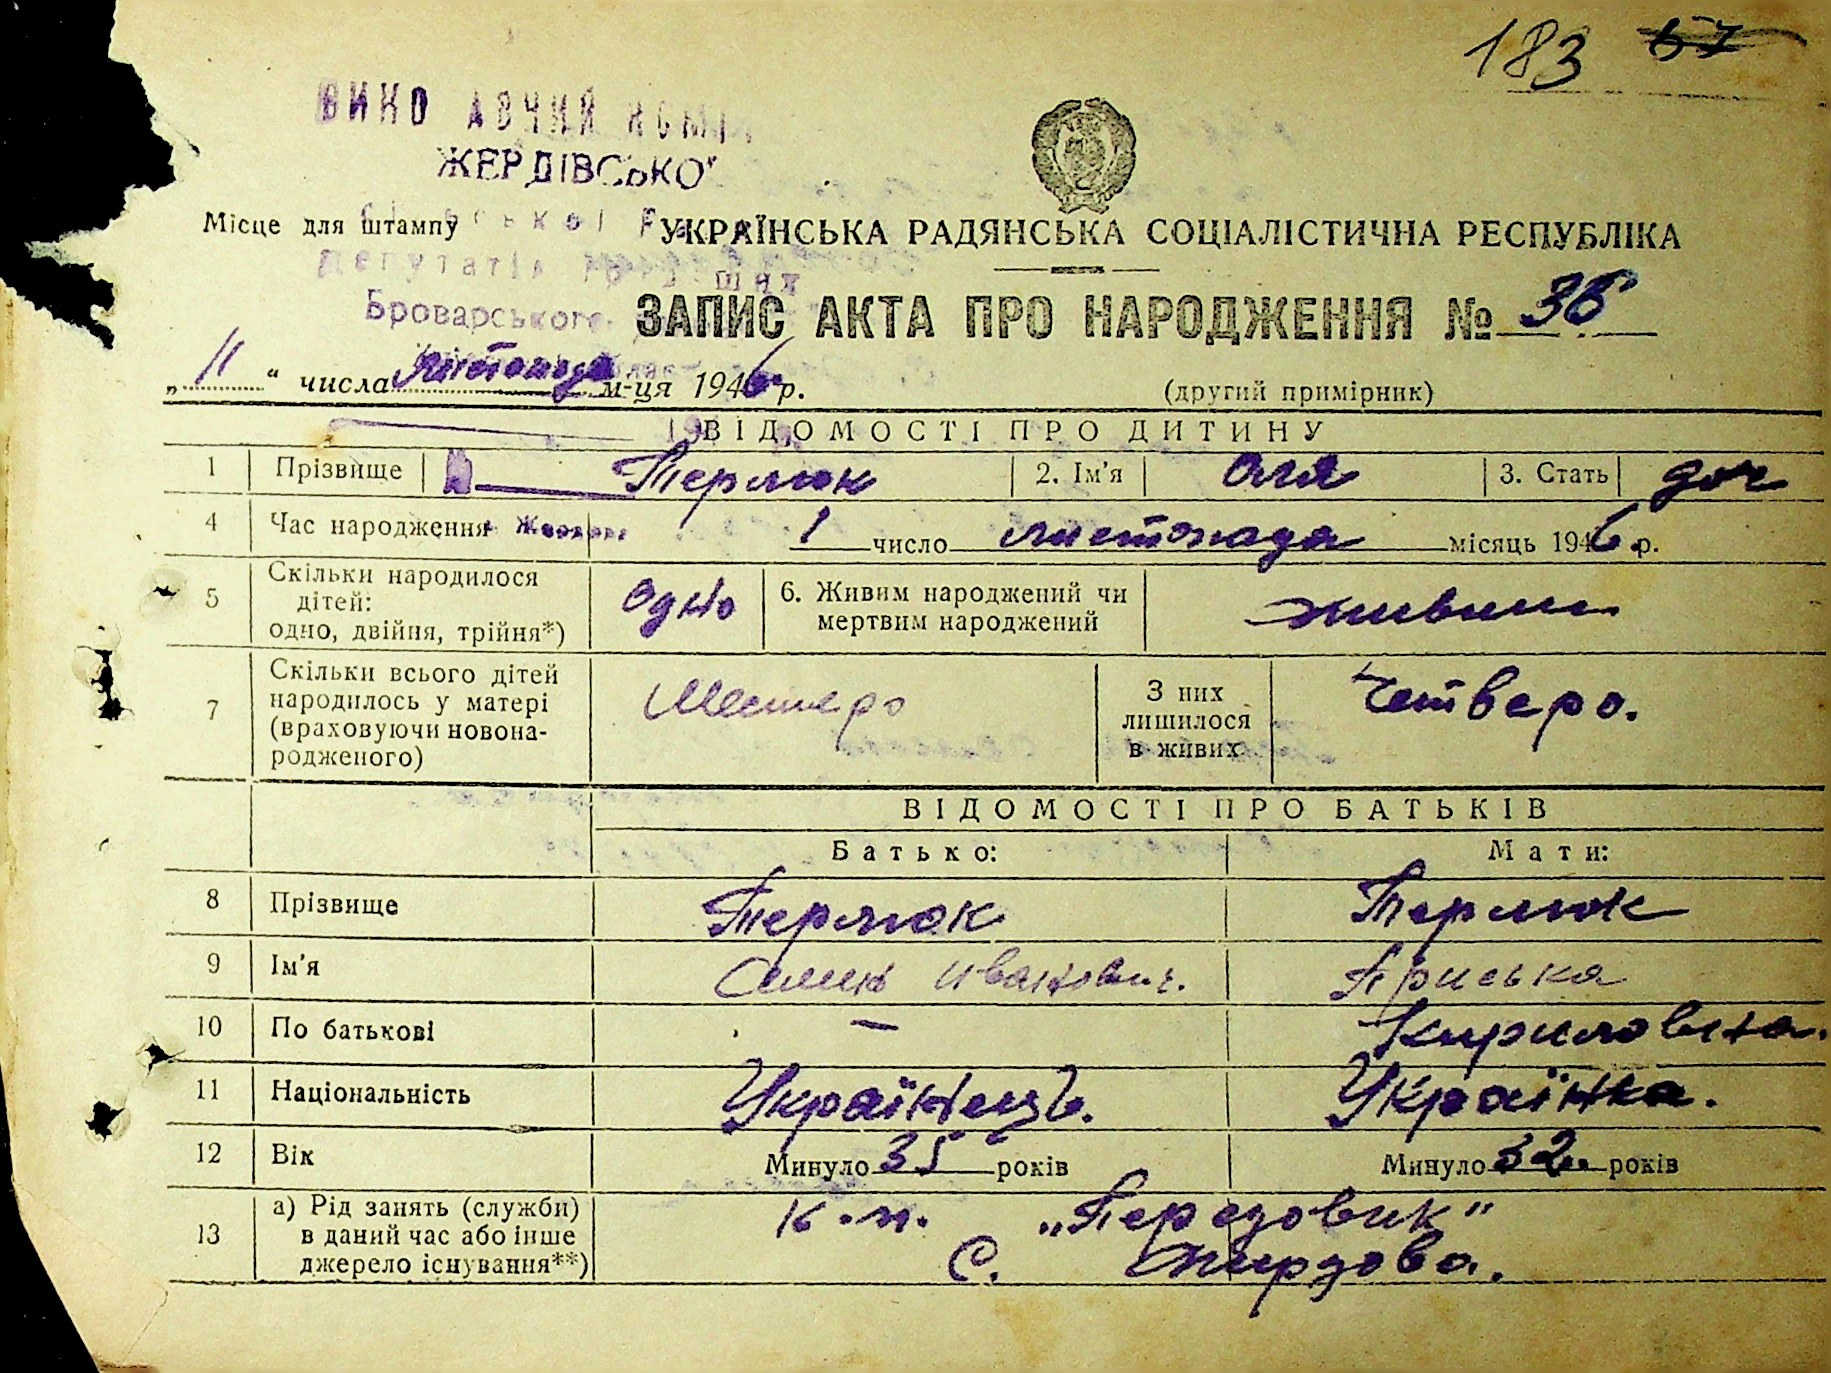 183 67
ВИКО АВЧИЙ КОМІ
ЖЕРДІВСЬКО
Місце для штампу
УКРАЇНСЬКА РАДЯНСЬКА СОЦІАЛІСТИЧНА РЕСПУБЛІКА
Броварського
ЗАПИС АКТА ПРО НАРОДЖЕННЯ № 36
„11“ числа листопада м-ця 1946 р. (другий примірник)
ВІДОМОСТІ ПРО ДИТИНУ
1 Прізвище Терлюк 2. Ім'я Оля 3. Стать доч
4 Час народження 1 число листопада місяць 1946 р.
5 Скільки народилося дітей: одно, двійня, трійня*) Одно 6. Живим народжений чи мертвим народжений живим
7 Скільки всього дітей народилось у матері (враховуючи новонародженого) Шестеро З них лишилося в живих Четверо.
ВІДОМОСТІ ПРО БАТЬКІВ
Батько: Мати:
8 Прізвище Терлюк Терлюк
9 Ім'я Семен Іванович. Приська
10 По батькові — Кириловна.
11 Національність Українець. Українка.
12 Вік Минуло 35 років Минуло 32 років
13 а) Рід занять (служби) в даний час або інше джерело існування**) к.п. „Передовик"
с. Жирдова.